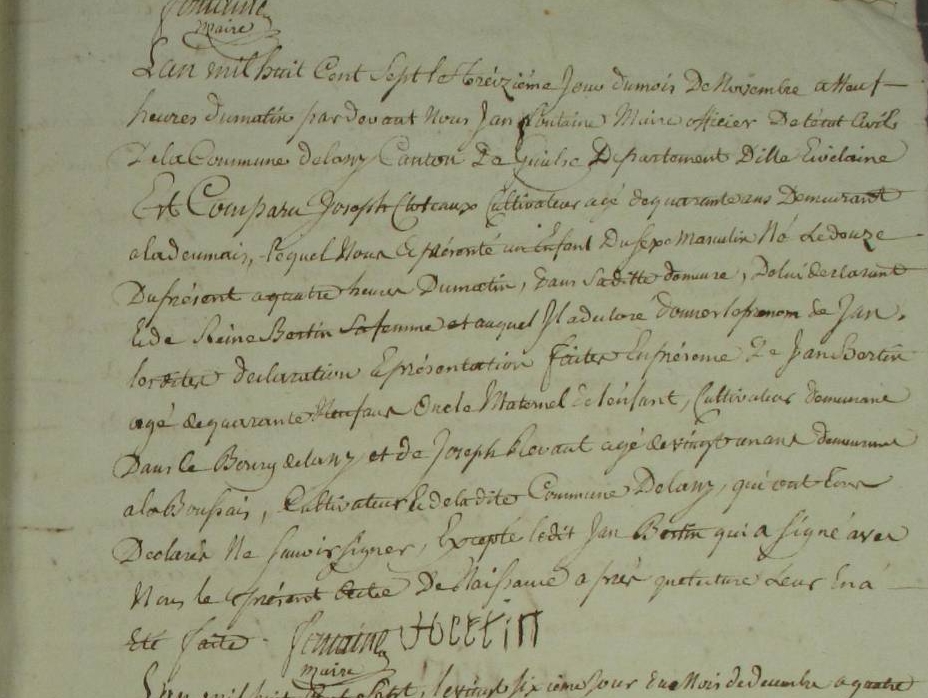 fontaine
maire
L'an mil huit Cent Sept le treizième Jour du mois De Novembre a Neuf
heures du matin par devant Nous Jan fontaine Maire officier De l'état Civil
De la Commune de lanz Canton De Departement Dille Evilaine
Est Comparu Joseph Cultivateur agé de quarante ans Demeurant
a la lequel Nous a présenté un Enfant Du Sexe Masculin Né Le douze
Du présent a quatre heures Du matin, Dans Sa ditte demeure, De lui déclarant
Et de Reine Bertin Sa femme et auquel Il a déclaré donner le prenom de Jan.
les dites declaration Et présentation faites En présence De Jan Bertin
agé de quarante Neuf ans Oncle Maternel de l'enfant, Cultivateur demeurant
Dans le Bourg de lanz et de Joseph agé de vingt un ans demeurant
a la Boussais, Cultivateur de la dite Commune De lanz, qui ont tous
Declarés Ne Savoir signer, Excepté le dit Jan Bertin qui a Signé avec
Nous le présent Acte De Naissance après que lecture Leur En a
Eté faite. fontaine bertin
maire
L'an mil huit Cent Sept, le vingt Sixième Jour Du Mois de decembre a quatre